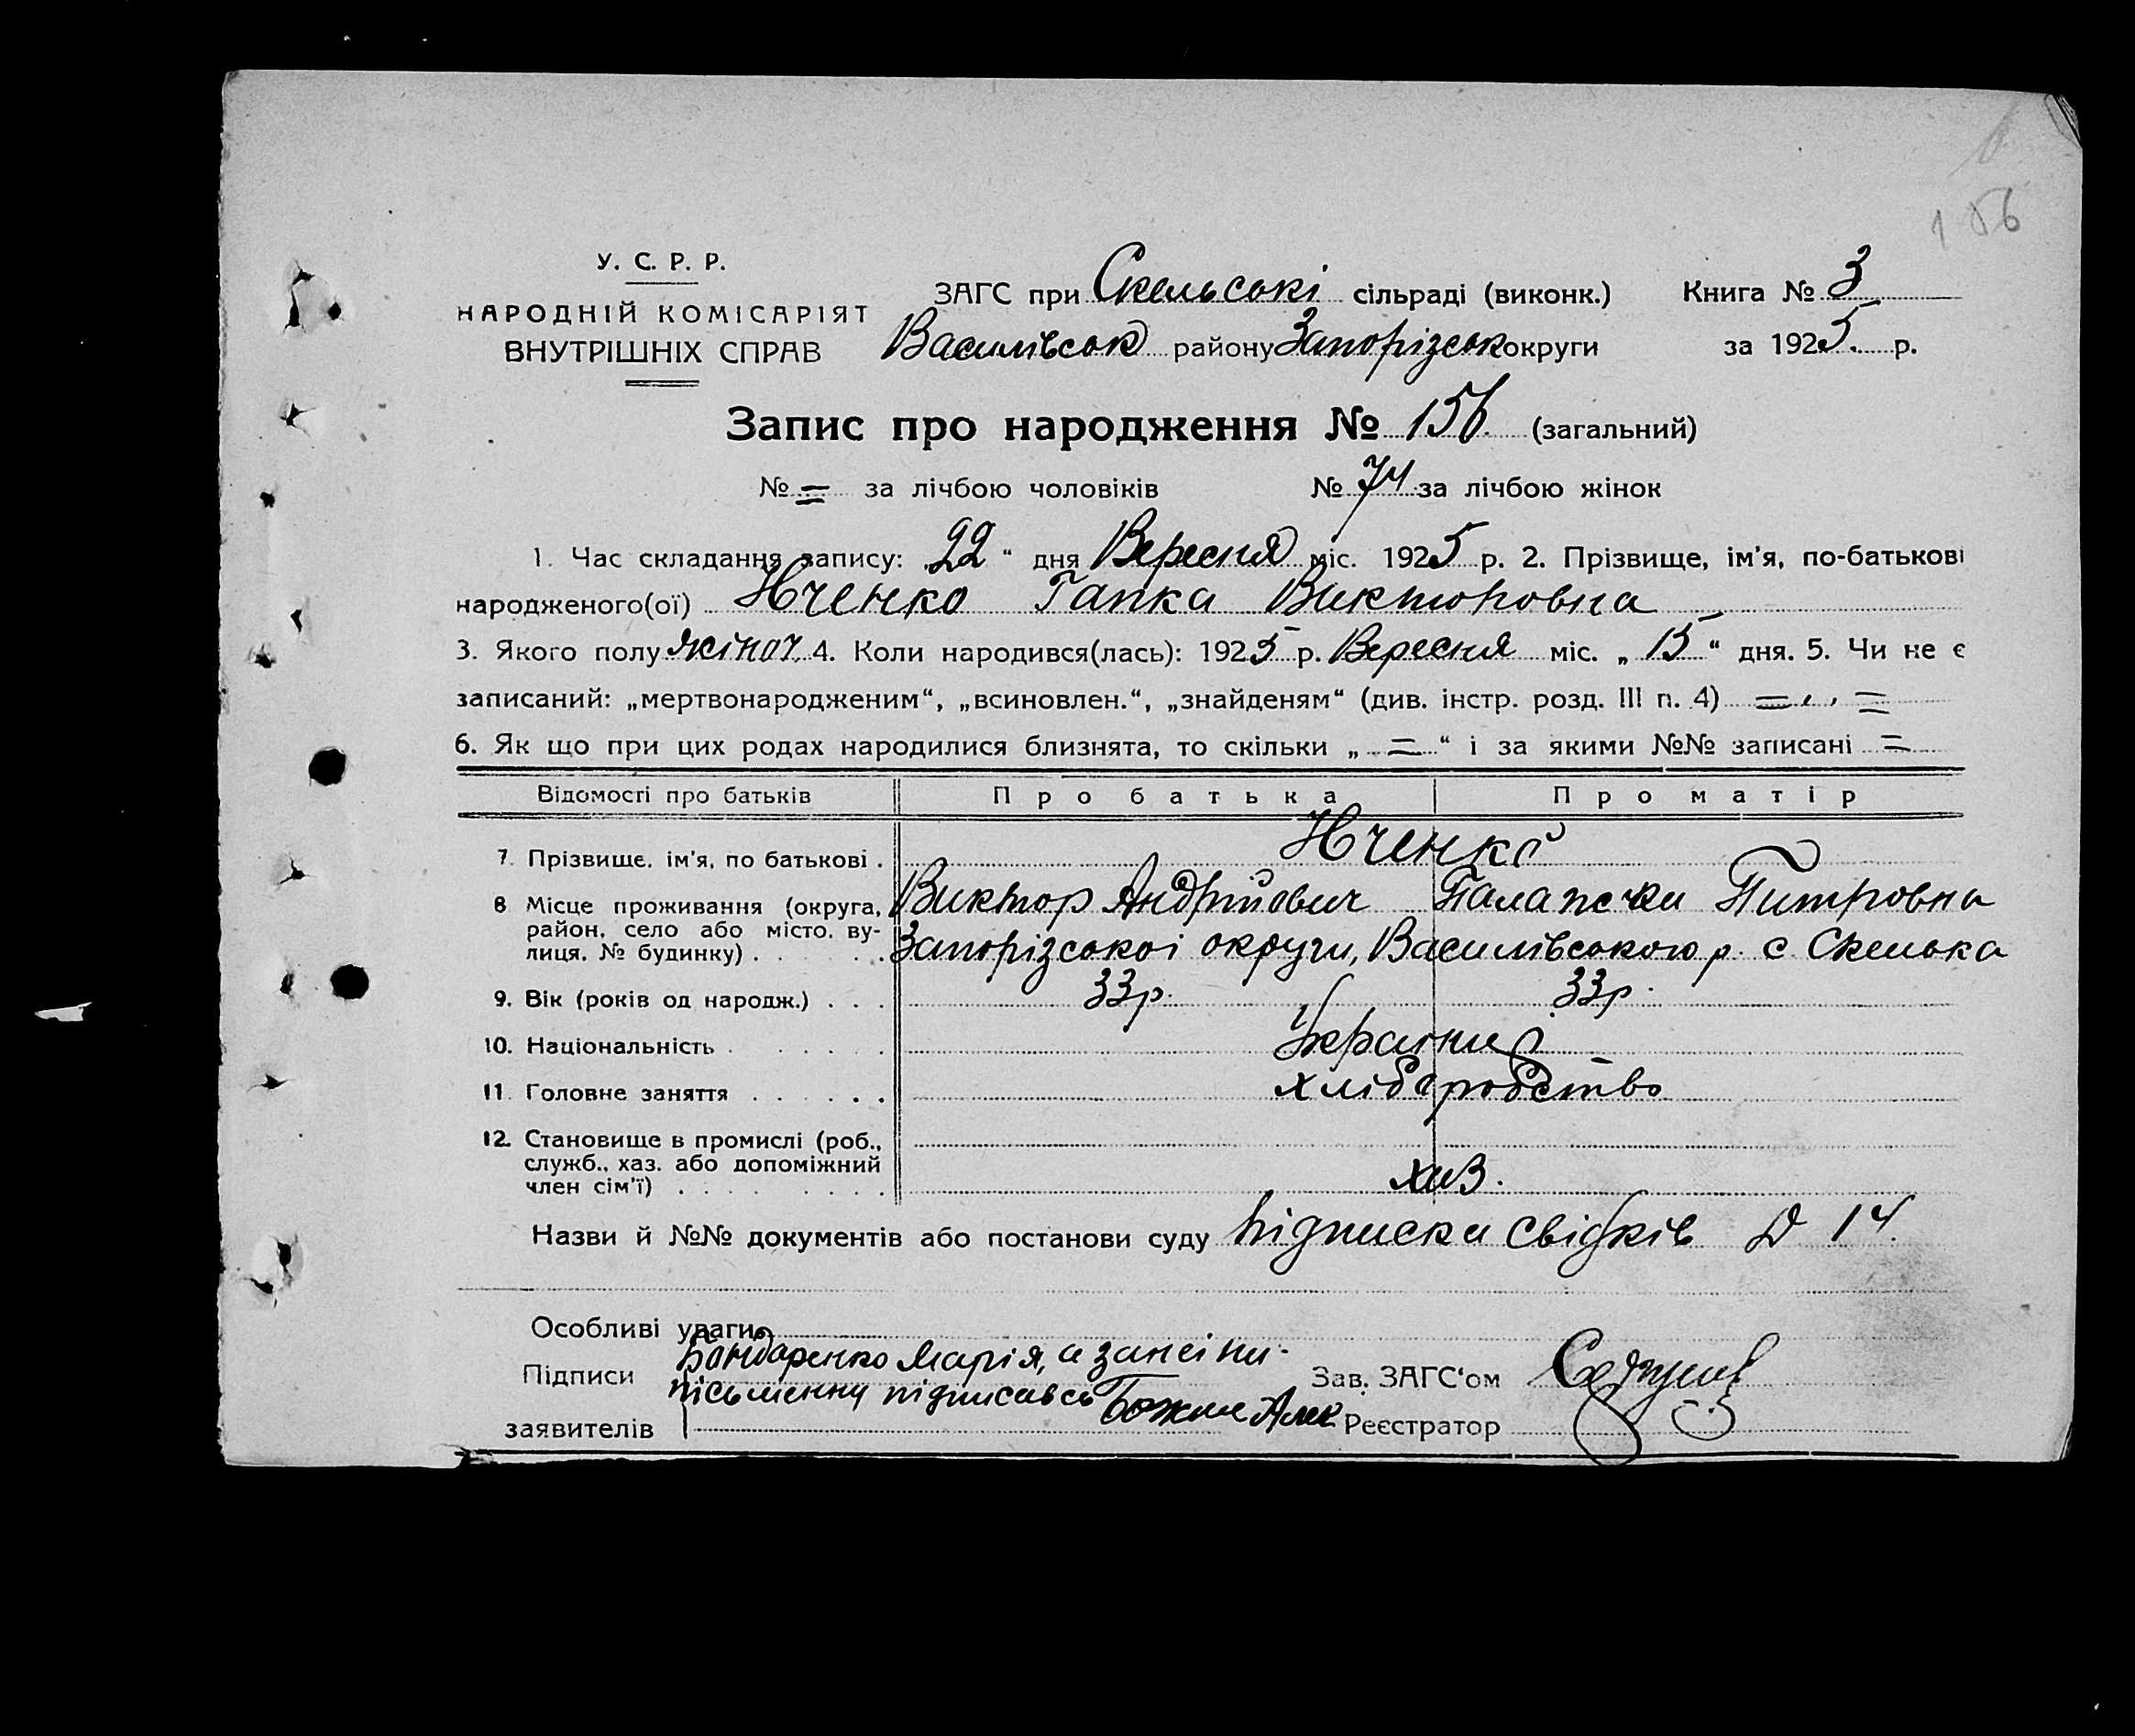 156
У. С. Р. Р.
НАРОДНІЙ КОМІСАРІЯТ
ВНУТРІШНІХ СПРАВ
ЗАГС при Скельські сільраді (виконк.) Книга № 3
Василівськ району Запорізськ округи за 1925. р.
Запис про народження № 156. (загальний)
№ = за лічбою чоловіків № 74 за лічбою жінок
1. Час складання запису: 22 “ дня Вересня міс. 1925 р. 2. Прізвище, ім'я, по-батькові
народженого(ої) Юченко Гапка Викторовна
3. Якого полу жіноч. 4. Коли народився(лась): 1925 р. Вересня міс. „ 15 “ дня. 5. Чи не є
записаний: „мертвонародженим“, „всиновлен.“, „знайденям“ (див. інстр. розд. III п. 4) = , , =
6. Як що при цих родах народилися близнята, то скільки „ = “ і за якими №№ записані =
Відомості про батьків Про батька Про матір
7. Прізвище, ім'я, по батькові . Юченко
Виктор Андрійович Питровна
8 Місце проживання (округа, район, село або місто, вулиця, № будинку) . Запорізськоі округи, Василівського р. с Скелька
9. Вік (років од народж.) . . . 33р. 33р.
10. Національність . . . .
11. Головне заняття . . . . . . хліборобство
12. Становище в промислі (роб., служб., хаз. або допоміжний член сім'ї) . . . .
Назви й №№ документів або постанови суду підписка свідків Д 14.
Особливі уваги
Підписи Бондаренко Марія, а за неі ни-
пісьменну підписавсь Алек
заявителів
Зав. ЗАГС'ом
Реєстратор